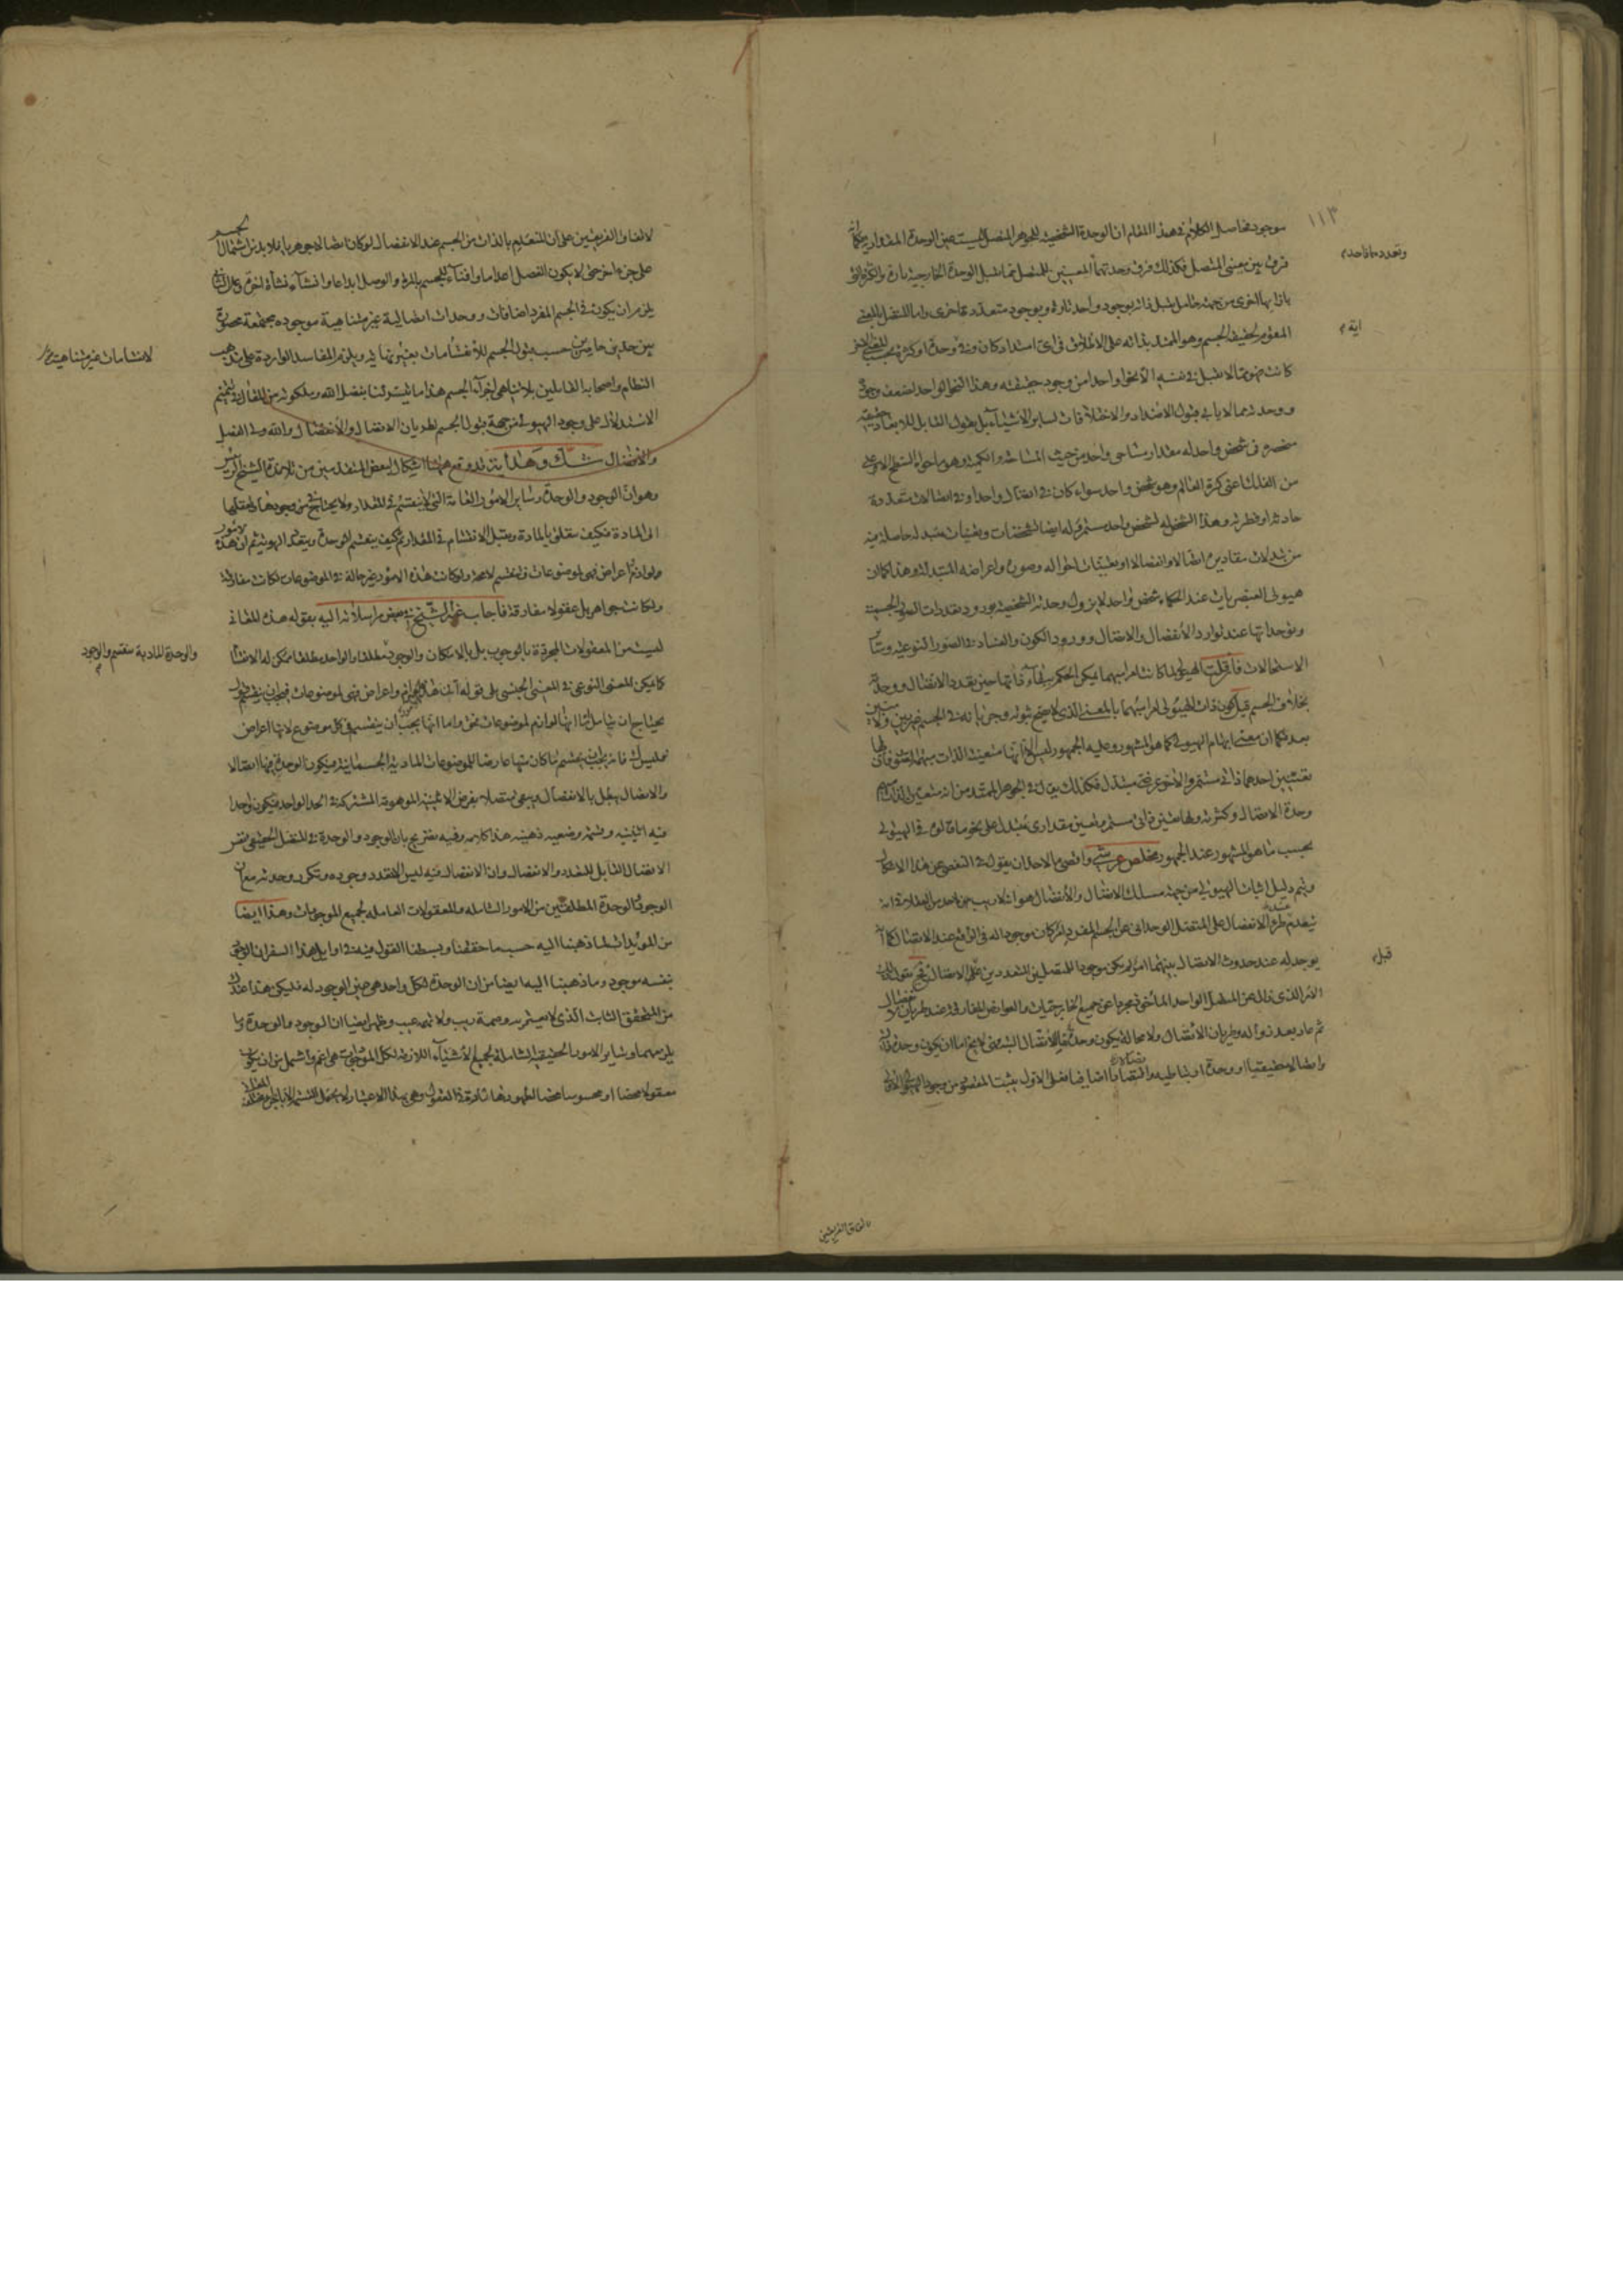 ١١٣
موجود فحاصل الكلام في هذا المقام ان الوحدة الشخصية للجوهر المتصل ليست عين الوحدة المقدارية فكما
فرق بين معنيي المتصل فكذلك فرق وحدتهما المعنيين للمتصل مما تقبل الوحدة الخارجية تارة والكثرة التي
بازائها اخرى من جهة حامل تقبل ذاته بوجود واحد تارة وبوجود متعددة اخرى واما المتصل بالمعنى
المقوم لحقيقة الجسم وهو الممتد بذاته على الاطلاق في اي امتداد كان وفي وحدة او كثرة بحسب المعنى الاخر
كانت فهو مما لا تقبل في نفسه الا نحوا واحدا من وجود حقيقته وهذا النحو الواحد لضعف وجوده
ووحدته مما لا يابى قبول الامتداد والاختلاف كسائر الاشياء بل نقول القابل للابعاد حقيقة
منحصرة في شخص واحد له مقدار مساحي واحد من حيث المساحة والكمية وهو ما حواه السطح الاعلى
من الفلك اعني كرة العالم وهو شخص واحد سواء كان في اتصال واحد او في اتصالات متعددة
حادثة او فطرية وهذا الشخص له تشخص واحد مستمر وله ايضا تشخصات وتعينات متبدلة حاصلة فيه
من تبدلات مقاديره اتصالا وانفصالا او تعينات احواله وصوره واعراضه المتبدلة وهذا كما ان
هيولى العنصريات عند الحكماء شخص واحد لا يزول وحدته الشخصية بورود تعددات الصور الجسمية
وتوحداتها عند توارد الانفصال والاتصال وورود الكون والفساد في الصور النوعية وسائر
الاستحالات فان قلت الهيولى لما كانت امرا مبهما يمكن الحكم ببقاء ذاتها حين تعدد الاتصال ووحدته
بخلاف الجسم قيل كون ذات الهيولى امرا مبهما بالمعنى الذي لا يصح ثبوته وجريانه في الجسم غير بين ولا مبين
بعد فكما ان معنى ابهام الهيولى كما هو المشهور وعليه الجمهور ليس الا انها متعينة الذات مبهمة الصور فلها
تعينين احدهما ذاتي مستمر والاخر عرضي متبدل فكذلك يقال في الجوهر الممتد من انه متعين الذات مبهم
وحدة الاتصال وكثرته ولها تعين ذاتي مستمر وتعين مقداري متبدل على نحو ما قالوه في الهيولى
بحسب ما هو المشهور عند الجمهور مخلص عرشي واقصى ما لاحد ان يقول في التفصي عن هذا الاشكال
ويتم دليل اثبات الهيولى من جهة مسلك الاتصال والانفصال هو انه لا ريب من احد من العقلاء في انه
ينعدم عند طرو الانفصال على المتصل الوحداني عن الجسم المفرد امر كان موجودا له في الواقع عند الاتصال كما انه
يوجد له عند حدوث الاتصال بينهما امر لم يكن موجودا للمتصلين المتعددين قبل الاتصال فح نقول ذلك
الامر الذي زال عن المتصل الواحد الماخوذ مجردا عن جميع الخارجيات والعوارض المفارقة عند طريان الانفصال
ثم عاد بعد زواله وطريان الانفصال ولا محالة يكون وحدة ما للاتصال البتة فنقول لا يخ اما ان يكون وحدة ذاتية
واتصالا حقيقيا او وحدة ارتباطية واتصالا اضافيا فعلى الاول يثبت المقصود من وجود الهيولى الاولى
وتعدده اذا حدم
اية م
قبل م
بالوفاق الفريقين
لاتفاق الفريقين على ان المنعدم بالذات من الجسم عند الانفصال لو كان اتصالا جوهريا فلا بد من اشتمال الجسم
على جزء اخر حتى لا يكون الفصل اعداما وافناء للجسم بالمرة والوصل ابداعا وانشاء نشاة اخرى وعلى الثاني
يلزم ان يكون في الجسم المفرد اضافات ووحدات اتصالية غير متناهية موجودة مجتمعة محصورة
بين حدين حاصرين حسب قبول الجسم للانقسامات بغير نهاية ويلزم المفاسد الواردة على مذهب
النظام واصحابه القائلين بلاتناهي اجزاء الجسم هذا ما تيسر لنا بفضل الله وملكوته من المقال في تتميم
الاستدلال على وجود الهيولى من جهة قبول الجسم لطريان الاتصال والانفصال والله ولي الفضل
والافضال شك وهداية قد وقع ههنا اشكال لبعض المتقدمين من تلامذة الشيخ الرئيس
وهو ان الوجود والوحدة وسائر الامور العامة التي لا ينقسم في المقدار ولا يحتاج في وجودها وتعقلها
الى المادة فكيف تتعلق بالمادة ويقبل الانقسام في المقدار ثم كيف ينقسم الوحدة ويتعدد الهوية ثم ان هذه الامور
ولوازمها اعراض فهي لموضوعات فينقسم لا محالة ولو كانت هذه الامور غير حالة في الموضوعات لكانت مفارقة
ولكانت جواهر بل عقولا مفارقة فاجاب عنه الشيخ في بعض مراسلاته اليه بقوله هذه المعاني
ليست من المعقولات المجردة بالوجوب بل بالامكان والوجود مطلقا والواحد مطلقا يمكن له الانقسام
كما يمكن للمعنى النوعي في المعنى الجنسي بلى قوله انت هذه لوازم واعراض فهي لموضوعات فيجب ان ينقسم قول
يحتاج ان يتامل اما انها لوازم لموضوعات فحق واما انها يجب ان ينقسم في كل موضوع لانها اعراض
فليس كذلك فانه يجب بقسم ما كان منها عارضا للموضوعات المادية الجسمانية فيكون الوحدة فيها اتصالا
والاتصال يبطل بالانفصال ويبقى متصلا بفرض الاثنينية الموهومة المشتركة في الحد الواحد فيكون واحدا
فيه اثنينية وقسمة وضعية ذهنية هذا كلامه وفيه تصريح بان الوجود والوحدة في المتصل الحقيقي نفس
الاتصال القابل للتعدد والانفصال وان الانفصال فيه ليس الا تعدد وجوده وتكرر وحدته مع ان
الوجود والوحدة المطلقتين من الامور الشاملة والمعقولات العامة لجميع الموجودات وهذا ايضا
من المؤيدات لما ذهبنا اليه حسب ما حققنا وبسطنا القول فيه في اوايل هذا السفر ان الوجود
بنفسه موجود وما ذهبنا اليه ايضا من ان الوحدة لكل واحد هي عين الوجود له فليكن هذا عندك
من المتحقق الثابت الذي لا يعتريه وصمة ريب ولا تهمة عيب وظهر ايضا ان الوجود والوحدة وما
يلزمهما وسائر الامور الحقيقية الشاملة لجميع الاشياء اللازمة لكل الموجودات هي اعم واشمل من ان يكون
معقولا محضا او محسوسا محضا لظهورها تارة في العقول وهي بهذا الاعتبار لا يحتمل القسمة الا بالاجزاء
لانقسامات غير متناهية
والوحدة المادية ينقسم والوجود